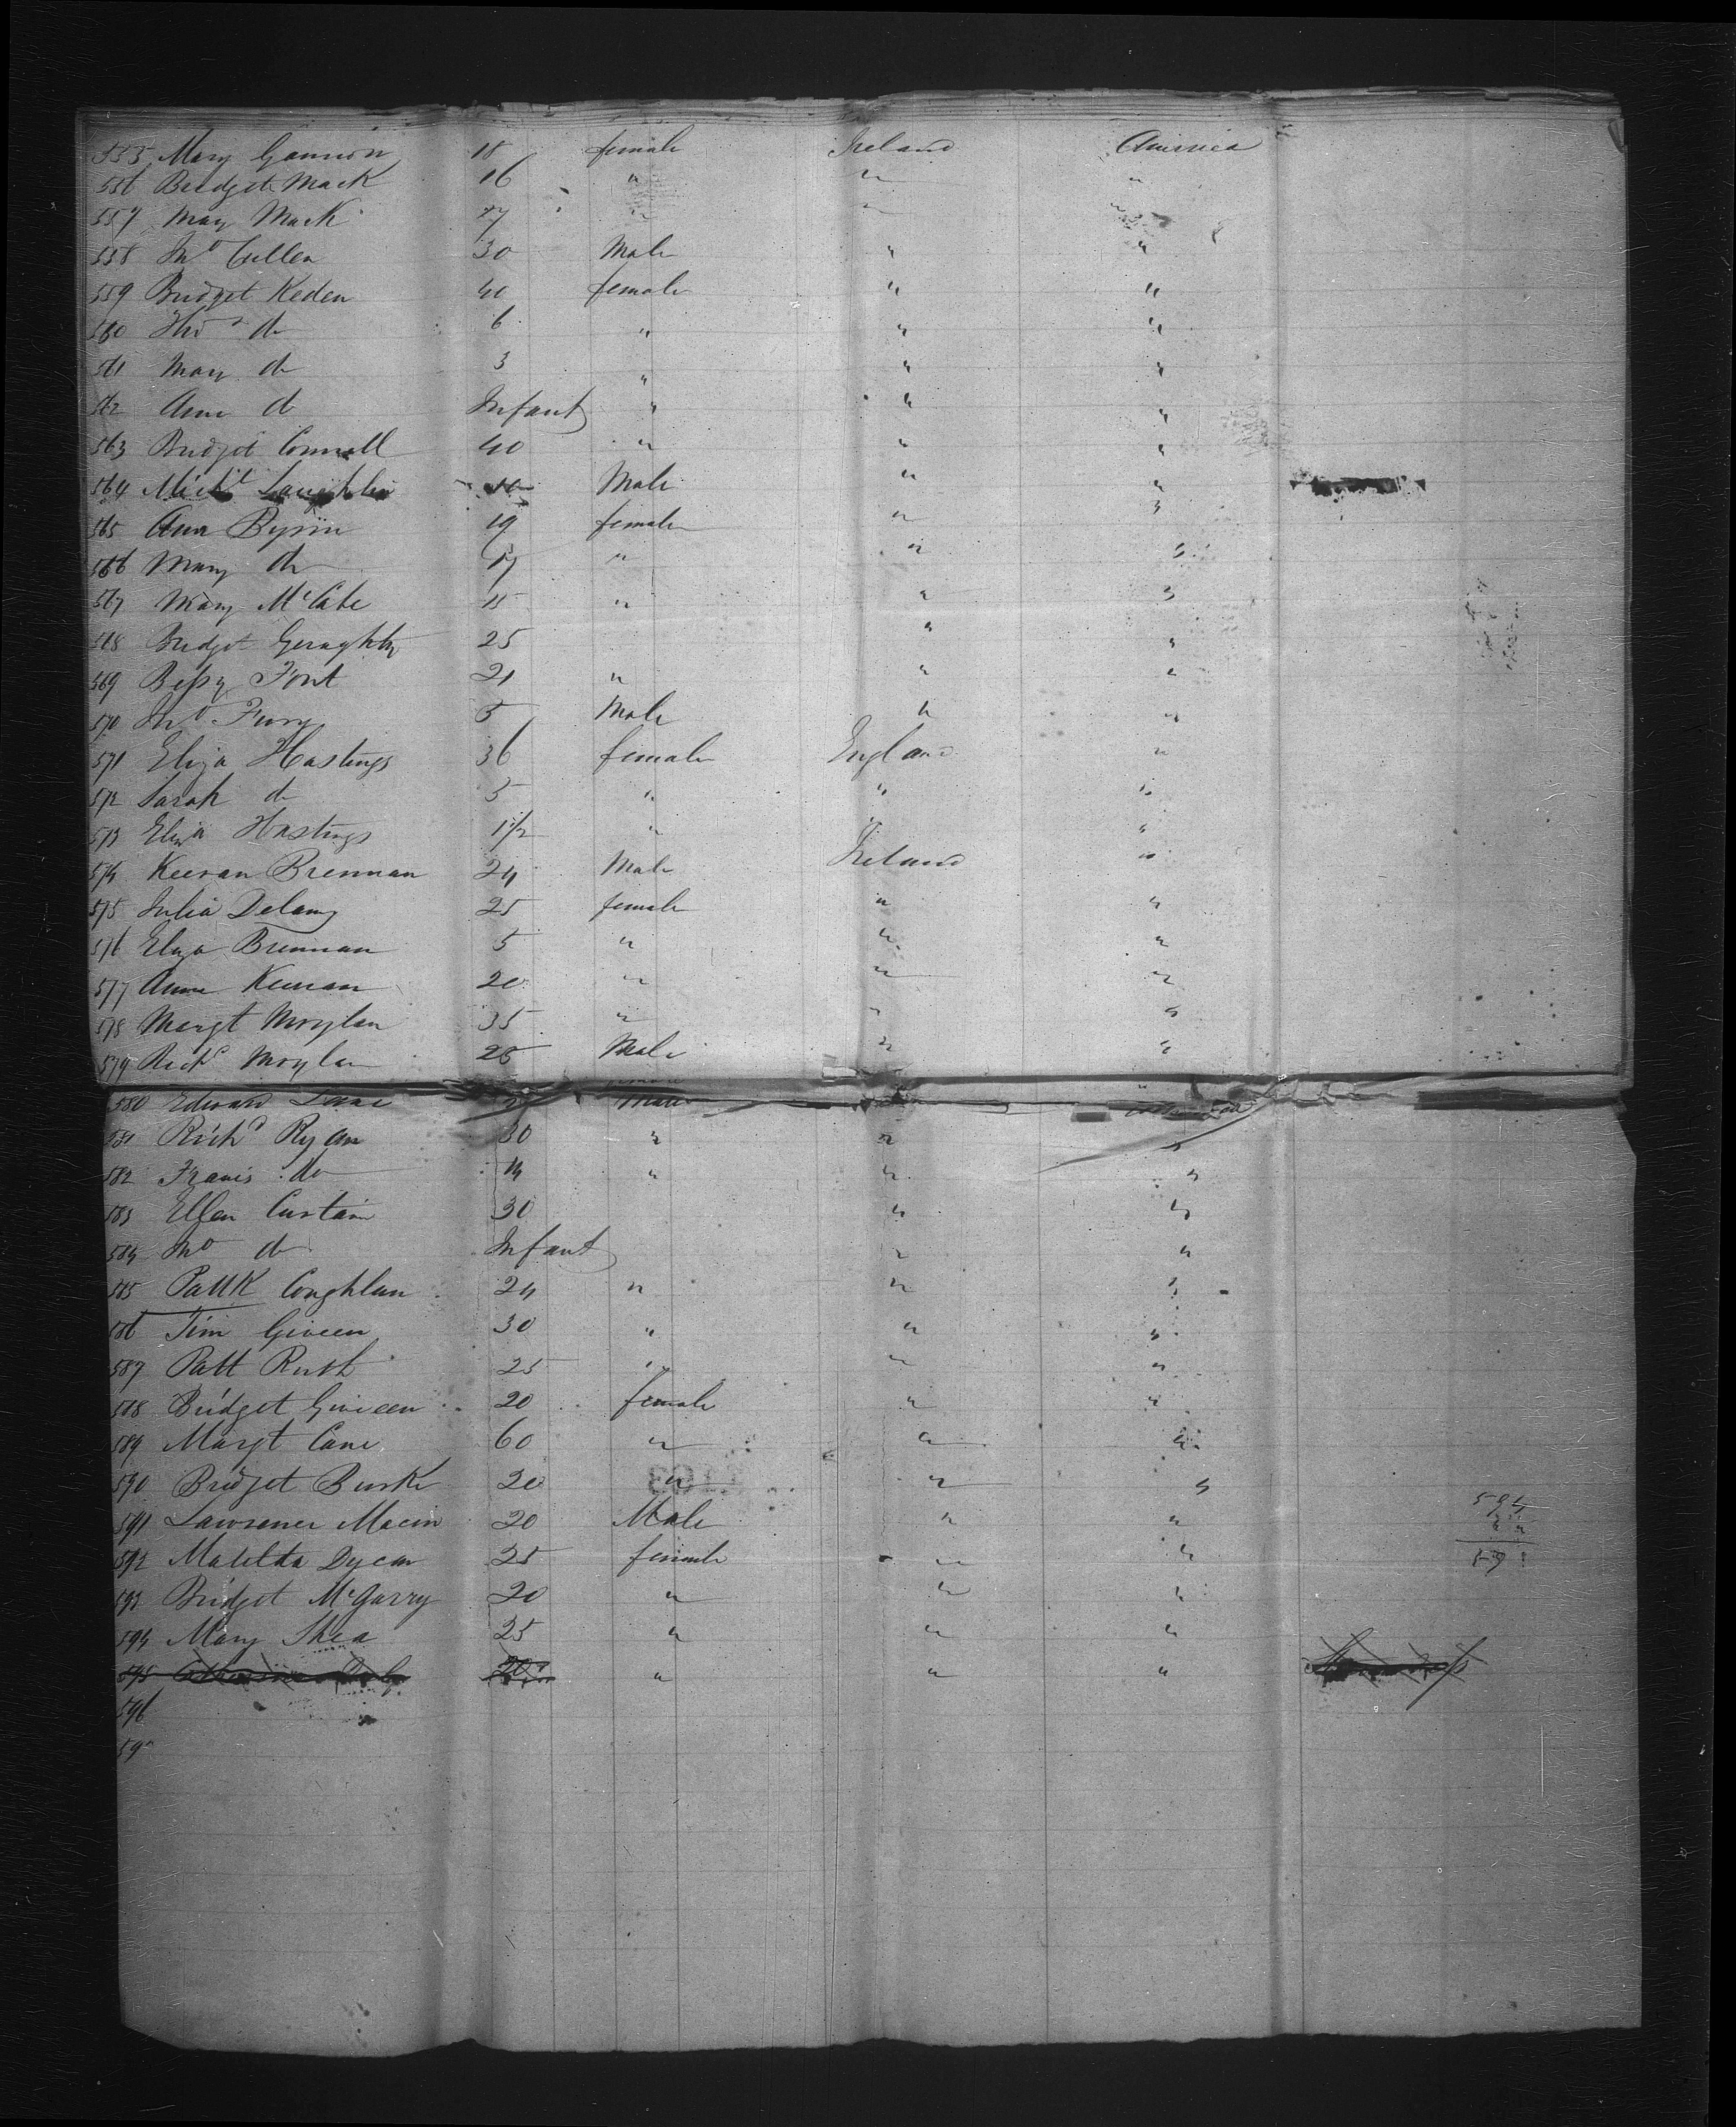 555 Mary Gannon 18 female Ireland America
556 Bridget Mack 16 " " "
557 Mary Mack 17 " " "
558 Jno Cullen 30 Male " "
559 Bridget Keden 40 female " "
560 Thos do 6 " " "
561 Mary do 3 " " "
562 Ann do Infant " " "
563 Bridget Connell 40 " " "
564 Michl Laughlin 10 Male " "
565 Ann Byrin 19 female " "
566 Mary do 17 " " "
567 Mary McCabe 15 " " "
568 Bridget Geraghty 25 " "
569 Bessy Font 21 " " "
570 Jno Fury 5 Male " "
571 Eliza Hastings 36 female England "
572 Sarah do 5 " " "
573 Eliza Hastings 1 1/2 " " "
574 Keeran Brennan 24 Male Ireland "
575 Julia Delany 25 female " "
576 Eliza Brennan 5 " " "
577 Anne Keenan 20 " " "
578 Margt Moylan 35 " " "
579 Richd Moylan 25 Male " "
580 Edward Male
581 Richd Ryan 30 " " "
582 Franis do 14 " " "
583 Ellen Curtain 30 " "
584 Jno do Infant " "
585 Pattk Coughlan 24 " " "
586 Tim Giveen 30 " " "
587 Patt Rush 25 " " "
588 Bridget Giveen 20 female " "
589 Margt Cane 60 " " "
590 Bridget Burke 20 " " "
591 Lawrence Macin 20 Male " "
594
592 Matilda Dycan 25 female " "
593 Bridget McGarry 20 " " "
594 Mary Shea 25 " " "
595 20 " " "
596